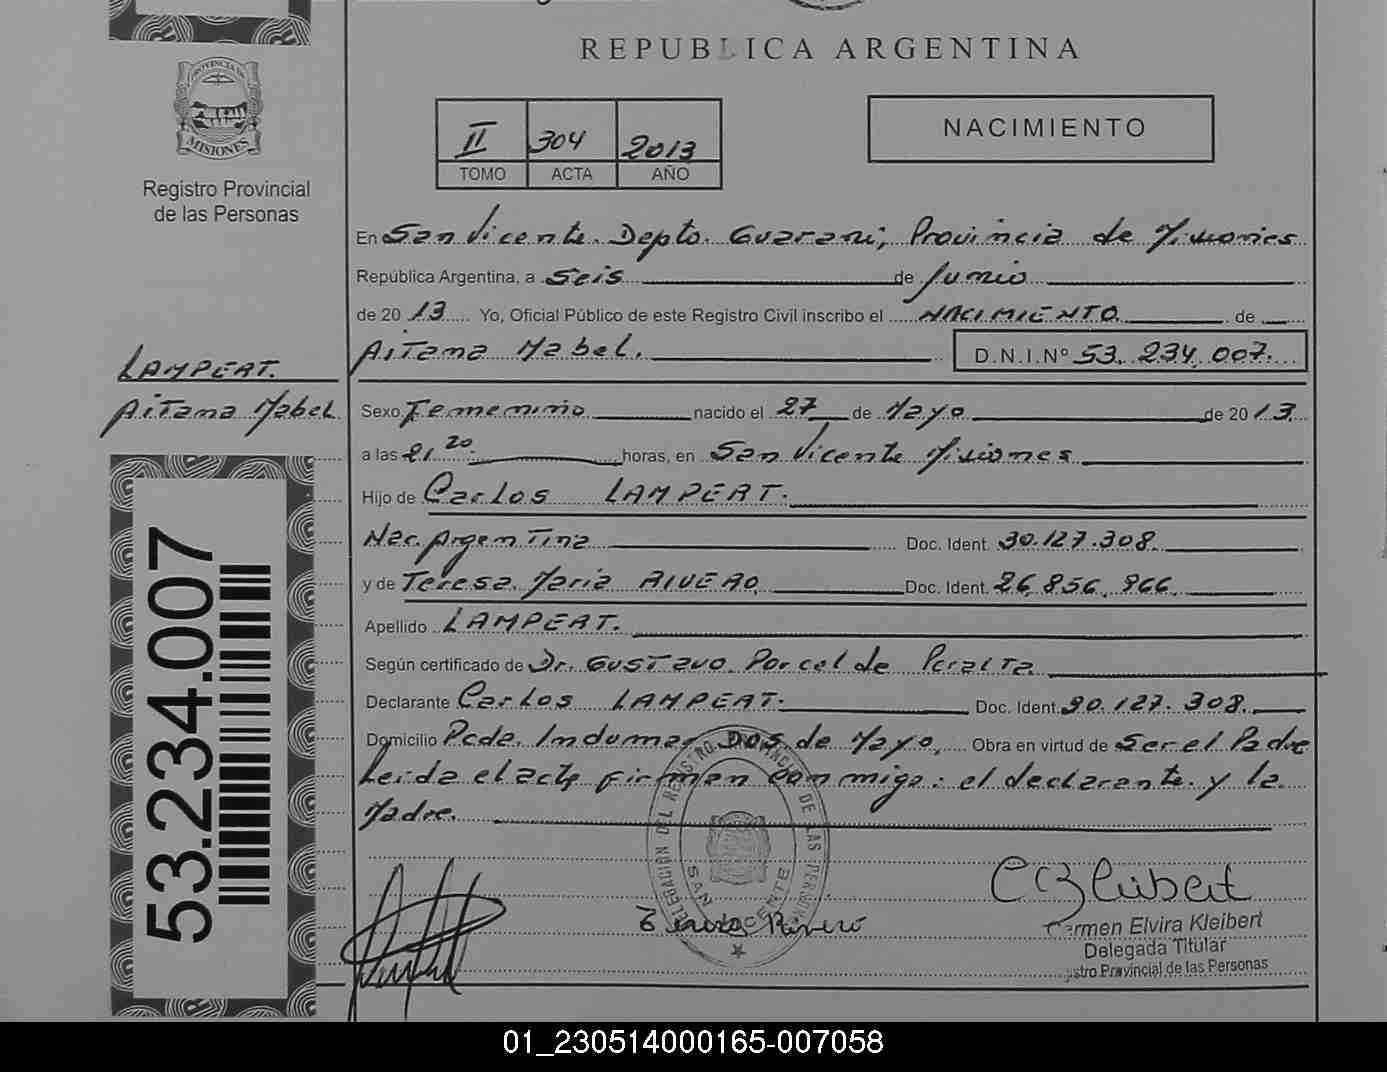 REPUBLICA ARGENTINA
PROVINCIA DE
MISIONES
Registro Provincial
de las Personas
II 304 2013
TOMO ACTA AÑO
NACIMIENTO
En San Vicente. Depto. Guarani, Provincia de Misiones
República Argentina, a Seis de Junio
de 20 13 Yo, Oficial Público de este Registro Civil inscribo el NACIMIENTO de
Aitana Mabel. D.N.I.Nº 53.234.007.
LAMPERT.
Aitana Mabel
Sexo Femenino nacido el 27 de Mayo de 2013.
a las 21.20 horas, en San Vicente Misiones
Hijo de Carlos LAMPERT.
Nac. Argentina Doc. Ident. 30.127.308.
y de Teresa Maria RIVERO Doc. Ident. 26.856.966.
Apellido LAMPERT.
Según certificado de Dr. Gustavo Porcel de Peralta
Declarante Carlos LAMPERT. Doc. Ident. 30.127.308.
Domicilio Pcde. Indumar Dos de Mayo, Obra en virtud de Ser el Padre
Leida el acta firman conmigo: el declarante y la
Madre.
53.234.007
DELEGACIÓN DEL REGISTRO PROVINCIAL DE LAS PERSONAS
SAN VICENTE
Teresa Rivero
Kleibert
Carmen Elvira Kleibert
Delegada Titular
stro Provincial de las Personas
01_230514000165-007058